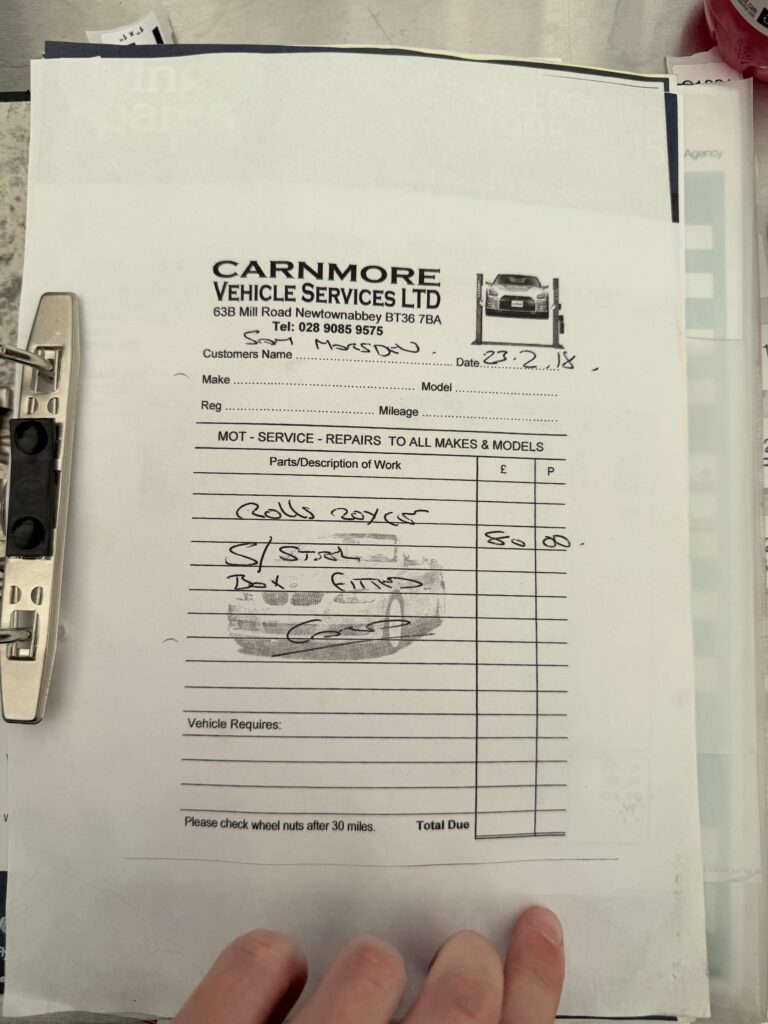 Agency
CARNMORE
VEHICLE SERVICES LTD
63B Mill Road Newtownabbey BT36 7BA
Tel: 028 9085 9575
Customers Name Sam Marsden. Date 23.2.18.
Make Model
Reg Mileage
MOT - SERVICE - REPAIRS TO ALL MAKES & MODELS
Parts/Description of Work £ P
Rolls Royce
80 00.
S/Steel
Box Fitted
Vehicle Requires:
Please check wheel nuts after 30 miles. Total Due